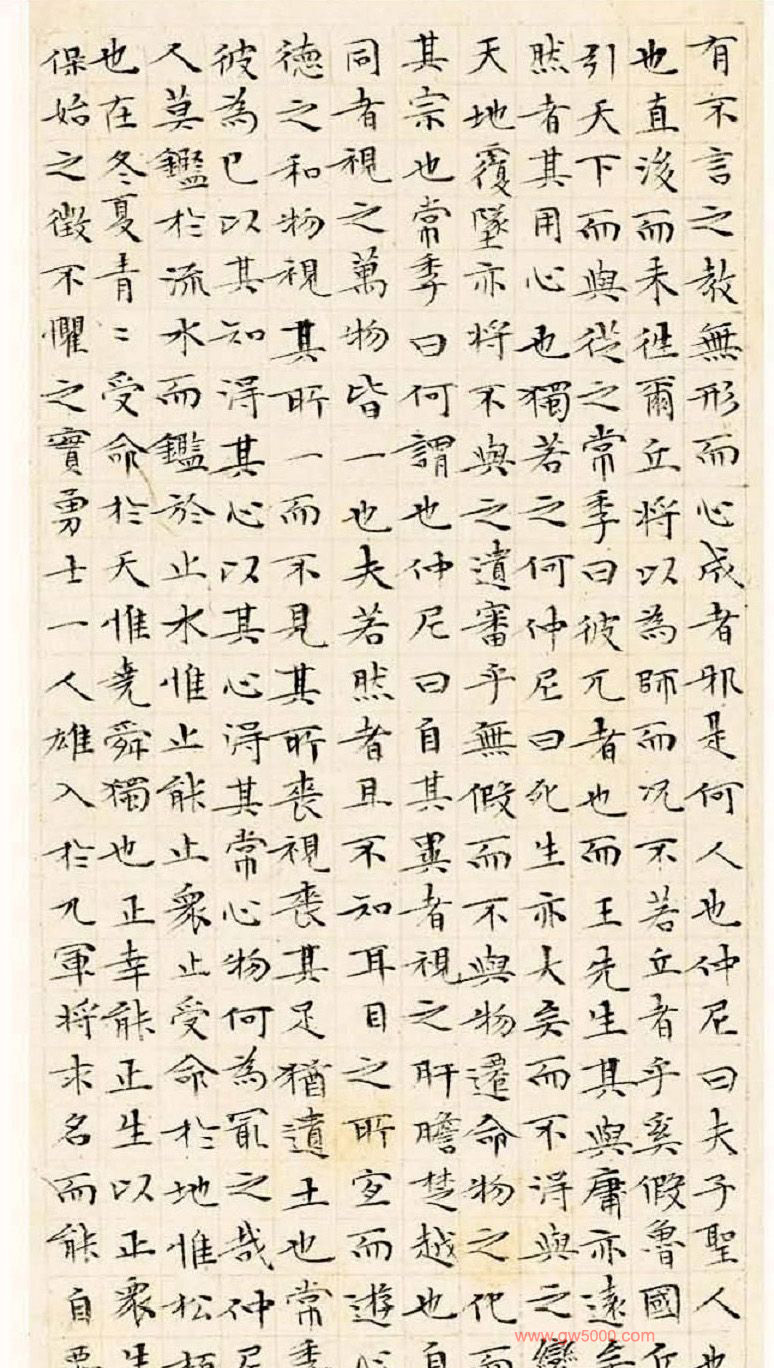 有不言之教無形而心成者邪是何人也仲尼曰夫子聖人也
也直後而未往爾丘將以為師而況不若丘者乎奚假魯國丘
引天下而與從之常季曰彼兀者也而王先生其與庸亦遠矣
然者其用心也獨若之何仲尼曰死生亦大矣而不得與之變
天地覆墜亦將不與之遺審乎無假而不與物遷命物之化而
其宗也常季曰何謂也仲尼曰自其異者視之肝膽楚越也自
同者視之萬物皆一也夫若然者且不知耳目之所宜而遊心
德之和物視其所一而不見其所喪視喪其足猶遺土也常季
彼為己以其知得其心以其心得其常心物何為冣之哉仲尼
人莫鑑於流水而鑑於止水惟止能止衆止受命於地惟松栢
也在冬夏青〻受命於天惟堯舜獨也正幸能正生以正衆生
保始之徵不懼之實勇士一人雄入於九軍將求名而能自要
www.gw5000.com